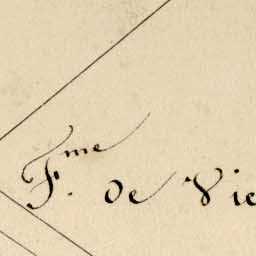 F.me de Vie